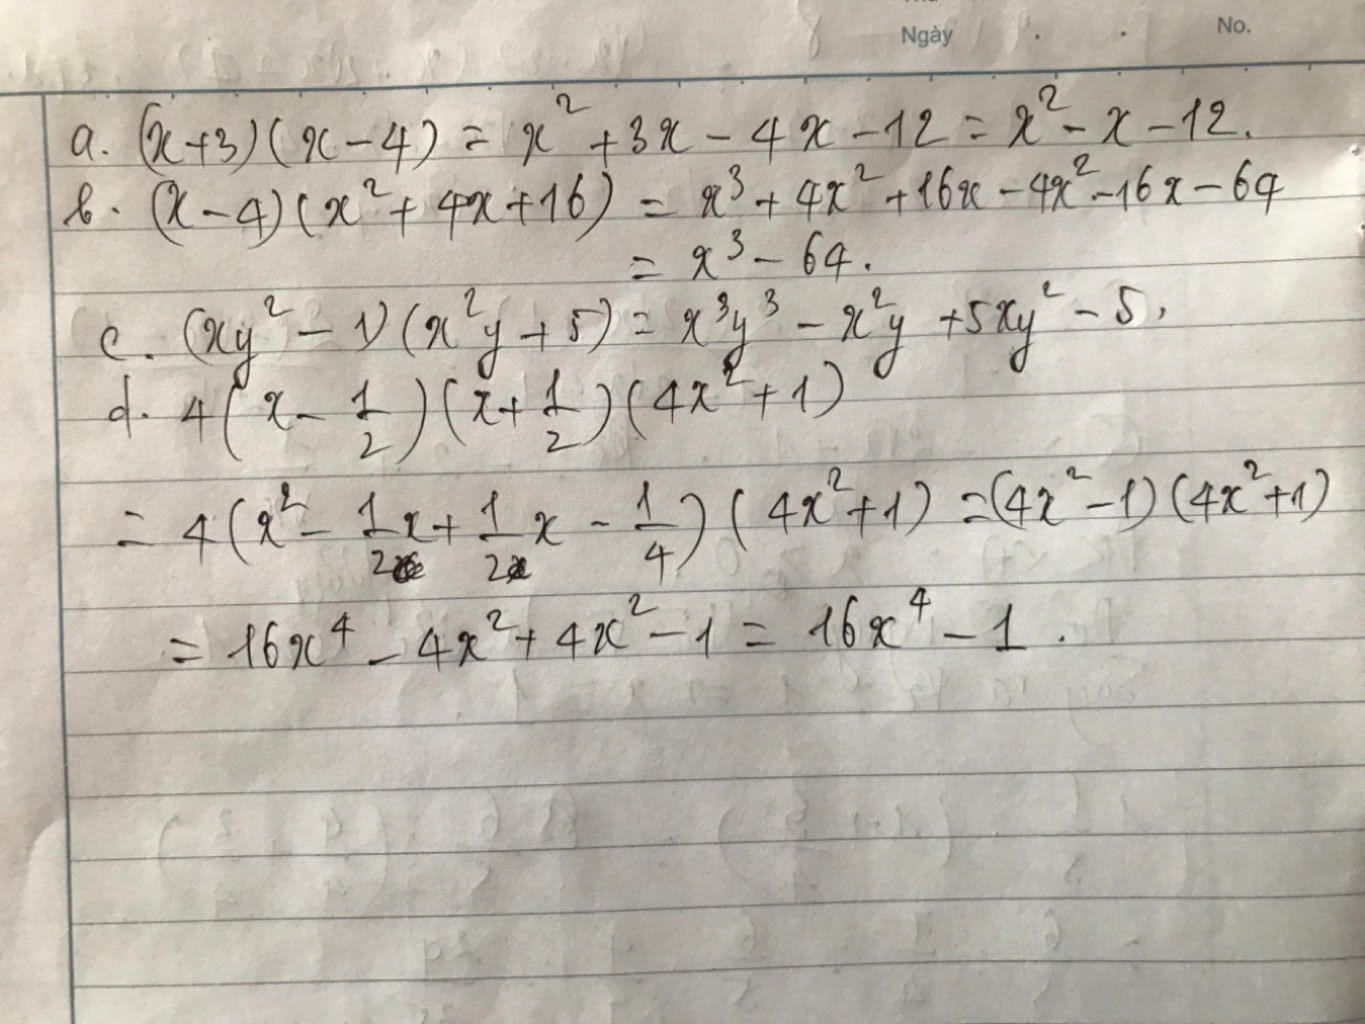 Ngày . . No.
a. (x+3)(x-4) = x² + 3x - 4x - 12 = x² - x - 12.
b. (x-4)(x² + 4x + 16) = x³ + 4x² + 16x - 4x² - 16x - 64
= x³ - 64.
c. (xy² - 1)(x²y + 5) = x³y³ - x²y + 5xy² - 5.
d. 4(x - 1/2)(x + 1/2)(4x² + 1)
= 4(x² - 1/2 x + 1/2 x - 1/4)(4x² + 1) = (4x² - 1)(4x² + 1)
= 16x⁴ - 4x² + 4x² - 1 = 16x⁴ - 1.